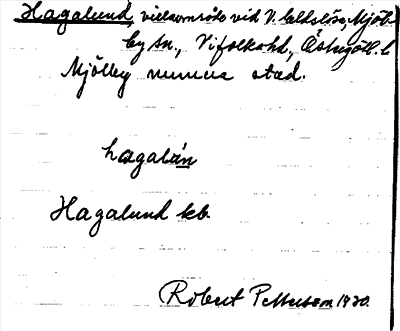 Hagalund, villaområde vid V. Eldslösa, Mjöl-
by sn., Vifolka hd, Östergötl. l
Mjölby numera stad.
hagalún
Hagalund kb.
Robert Pettersson 1920.